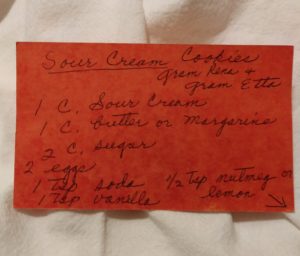 Sour Cream Cookies
Gram Rena +
Gram Etta
1 C. Sour Cream
1 C. butter or Margarine
2 C. sugar
2 eggs
1 tsp soda 1/2 tsp nutmeg or
1 tsp vanilla lemon